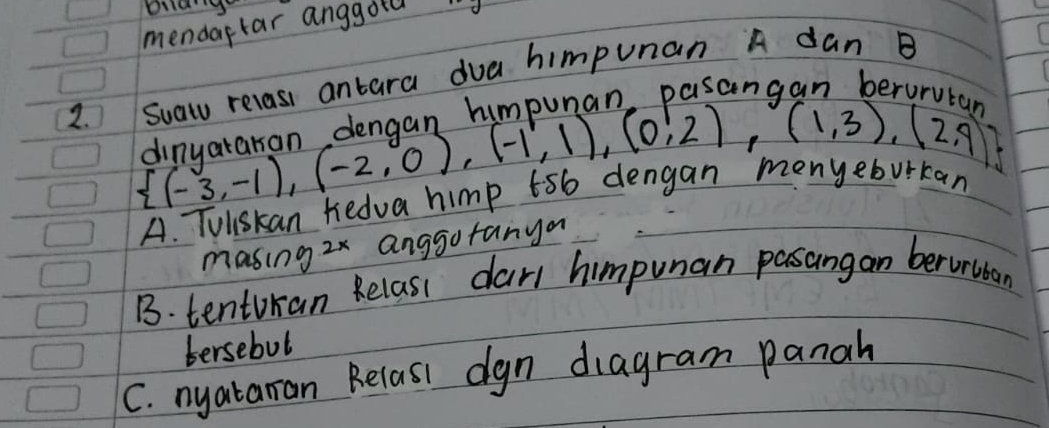 mendaptar anggota
2. Suatu relasi antara dua himpunan A dan B
dinyatakan dengan himpunan pasangan berurutan
{(-3,-1), (-2,0), (-1,1), (0,2), (1,3), (2,9)}
A. Tuliskan kedua himp tsb dengan menyebutkan
masing2x anggotanya
B. tentukan Relasi dari himpunan pasangan berurutan
tersebut
C. nyatakan Relasi dgn diagram panah